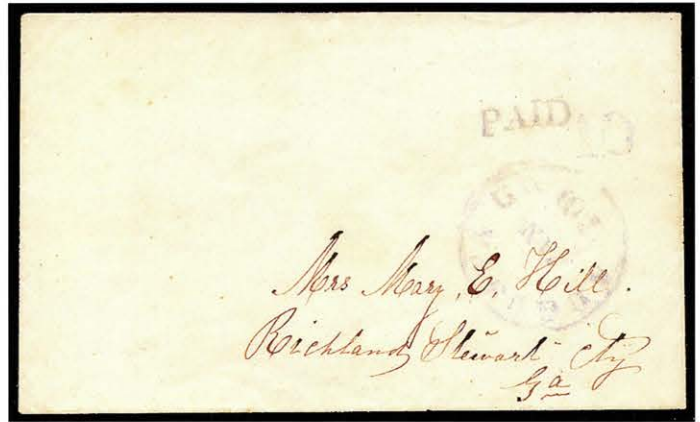 PAID
10
Mrs Mary, E, Hill.
Richland, Stewart cty
Ga